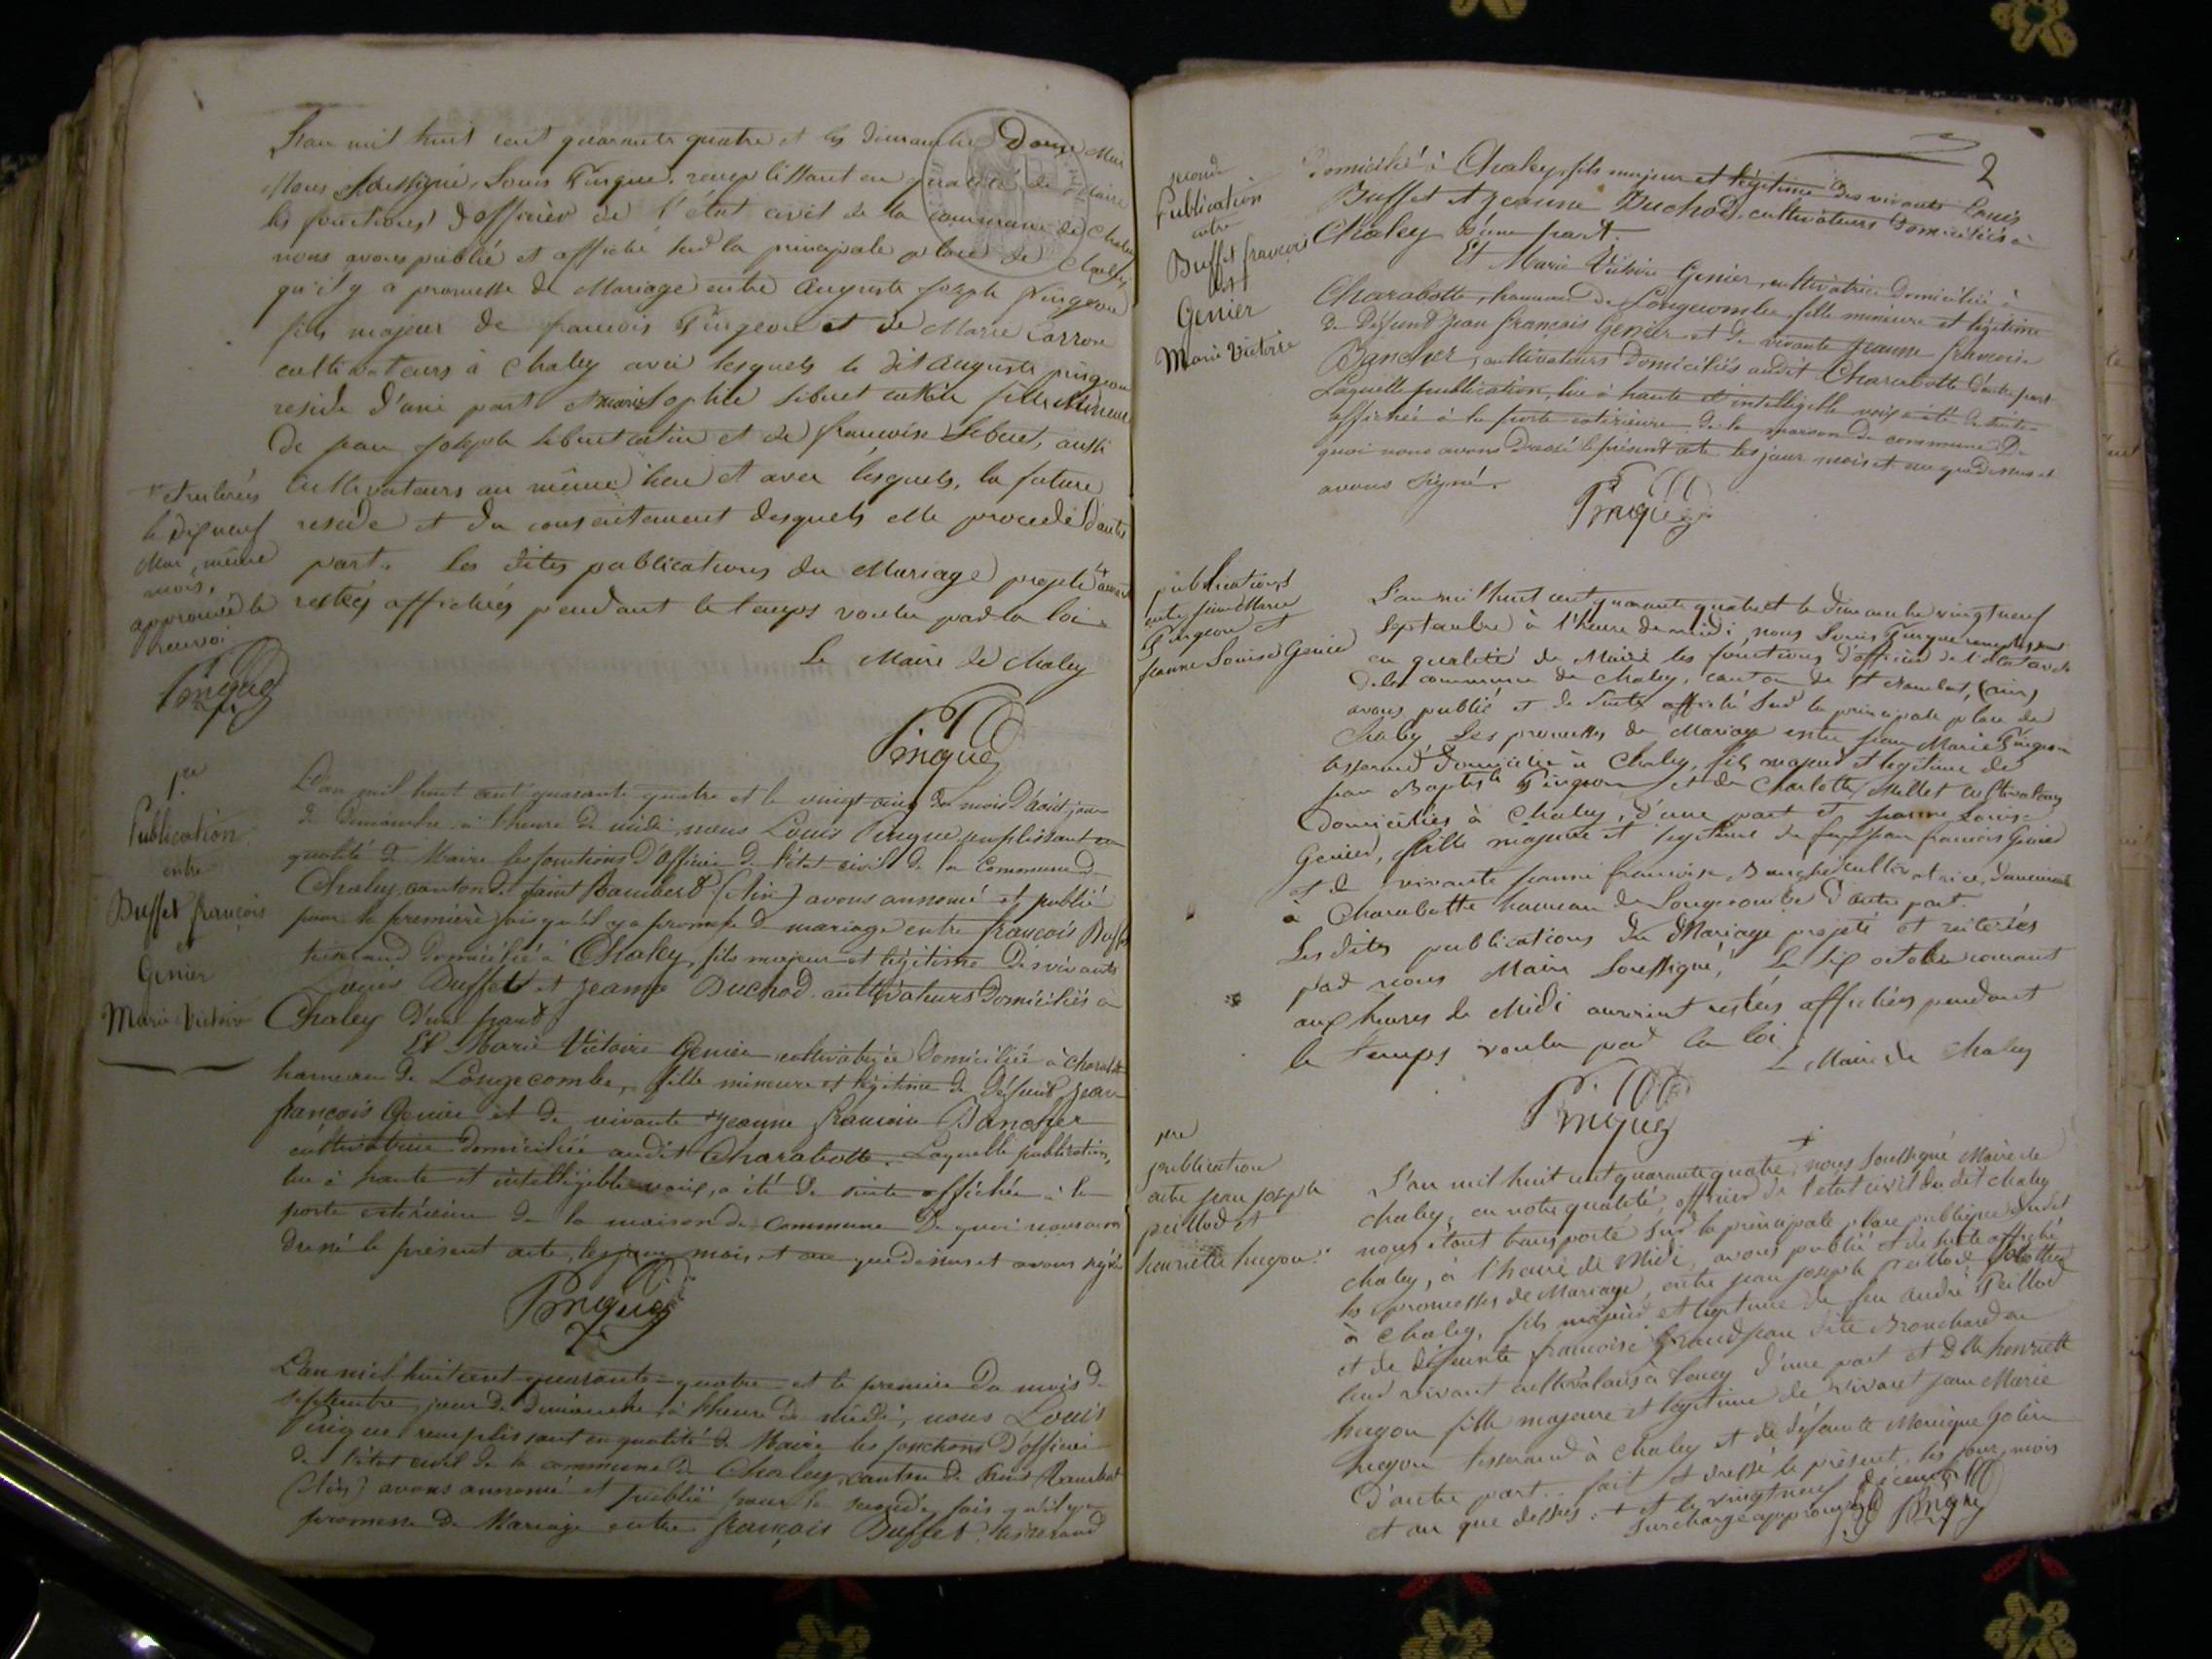 L'an mil huit cent quarante quatre et le dimanche Douze Mai
Nous soussigné, Louis Pingue, remplissant en qualité de Maire
les fonctions d'officier de l'état civil de la commune de Chaley
nous avons publié et affiché sur la principale place de Chaley
qu'il y a promesse de Mariage entre Auguste joseph Pingeon
fils majeur de francois Pingeon et de Marie Carron
cultivateurs à Chaley avec lesquels le dit auguste pingeon
reside d'une part et marie Sophie fille Mineure
de jean joseph et de francoise aussi
cultivateurs au même lieu et avec lesquels, la future
reside et du consentement desquels elle procede d'autre
part. les dites publications du Mariage projeté
restées affichées pendant le temps voulu par la loi
Le Maire de Chaley
Pingue
le dix neuf
Mai, même
mois,
approuvé le
renvoi
Pingue
1re
Publication
entre
Buffet françois
et
Genier
Marie Victoire
L'an mil huit cent quarante quatre et le vingt cinq du mois d'aout, jour
de dimanche à l'heure de midi, nous Louis Pingue remplissant en
qualité de Maire les fonctions d'officier de l'état civil de la Commune de
Chaley, canton de saint Rambert (Ain) avons annoncé et publié
pour la première fois qu'il y a promesse de mariage entre françois Buffet
tisserand domicilié à Chaley, fils majeur et légitime des vivants
Louis Buffet et Jeanne Buchod cultivateurs domiciliés à
Chaley d'une part
Et Marie Victoire Genier cultivatrice domiciliée à
hameau de Longecombe, fille mineure et légitime de défunt Jean
françois Genier et de vivante Jeanne francoise Bancher
cultivatrice domiciliée audit Charabotte. Laquelle publication,
lue à haute et intelligible voix, a été de suite affichée à la
porte extérieure de la maison de commune De quoi nous avons
dressé le présent acte, les jour mois et an que dessus et avons signé
Pingue
L'an mil huit cent quarante quatre et le premier du mois de
septembre, jour de dimanche, à l'heure de midi, nous Louis
Pingue remplissant en qualité de Maire les fonctions d'officier
de l'état civil de la commune de Chaley, canton de saint Rambert
(Ain) avons annoncé et publié pour la seconde fois qu'il y a
promesse de Mariage entre françois Buffet tisserand
2
seconde
Publication
entre
Buffet françois
et
Genier
Marie Victoire
Domicilié à Chaley, fils majeur et légitime des vivants Louis
Buffet et Jeanne Buchod, cultivateurs domiciliés à
Chaley d'une part.
Et Marie Victoire Genier, cultivatrice domiciliée à
Charabotte, hameau de Longecombe, fille mineure et légitime
de défunt Jean françois Genier et de vivante Jeanne francoise
Bancher, cultivateurs domiciliés audit Charabotte d'autre part
Laquelle publication, lue à haute et intelligible voix a été de suite
affichée à la porte extérieure de la maison de commune De
quoi nous avons dressé le présent acte les jour mois et an que dessus et
avons signé.
Pingue
publications
entre jean Marie
Pingeon et
jeanne Louise Genier
L'an mil huit cent quarante quatre et le dimanche vingt neuf
Septembre à l'heure de midi, nous Louis Pingue remplissant
en qualité de Maire les fonctions d'officier de l'état civil
de la commune de Chaley, canton de St Rambert, (ain)
avons publié et de suite affiché sur la principale place de
Chaley les promesses de Mariage entre jean Marie Pingeon
tisserand domicilié à Chaley, fils majeur et legitime de
jean Baptiste Pingeon et de Charlotte Mellet cultivateurs
domiciliés à Chaley, d'une part et jeanne Louise
Genier, fille majeure et legitime de feu jean francois Genier
et de vivante jeanne francoise cultivatrice, domiciliée
à Charabotte hameau de Longecombe d'autre part.
Les dites publications du Mariage projeté et reiterées
par nous Maire soussigné, le six octobre courant
aux heures de Midi auraient restées affichées pendant
le temps voulu par la loi
Le Maire de Chaley
Pingue
1ere
publication
entre jean joseph
peillod et
henriette hugon.
L'an mil huit cent quarante quatre + nous soussigné Maire de
Chaley, en notre qualité, officier de l'état civil du dit Chaley
nous étant transporté sur la principale place publique dudit
Chaley, à l'heure de Midi, avons publié et de suite affiché
les promesses de Mariage, entre jean joseph peillod
à Chaley, fils majeur et legitime de feu andré Peillod
et de défunte francoise Grandjean dite
leur vivant cultivateurs à d'une part et Dlle henriette
hugon fille majeure et legitime de vivant jean Marie
hugon tisserand à Chaley et de défunte Monique
d'autre part. fait et dressé le présent, les jour, mois
et an que dessus. + et le vingt neuf décembre
surcharge approuvée Pingue